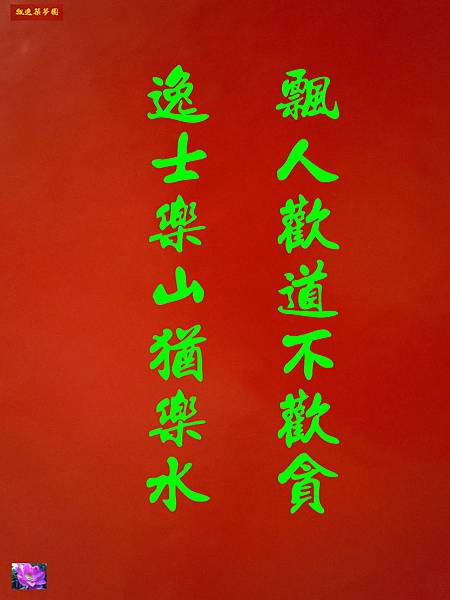 飄逸築夢園
飄人歡道不歡貪
逸士樂山猶樂水